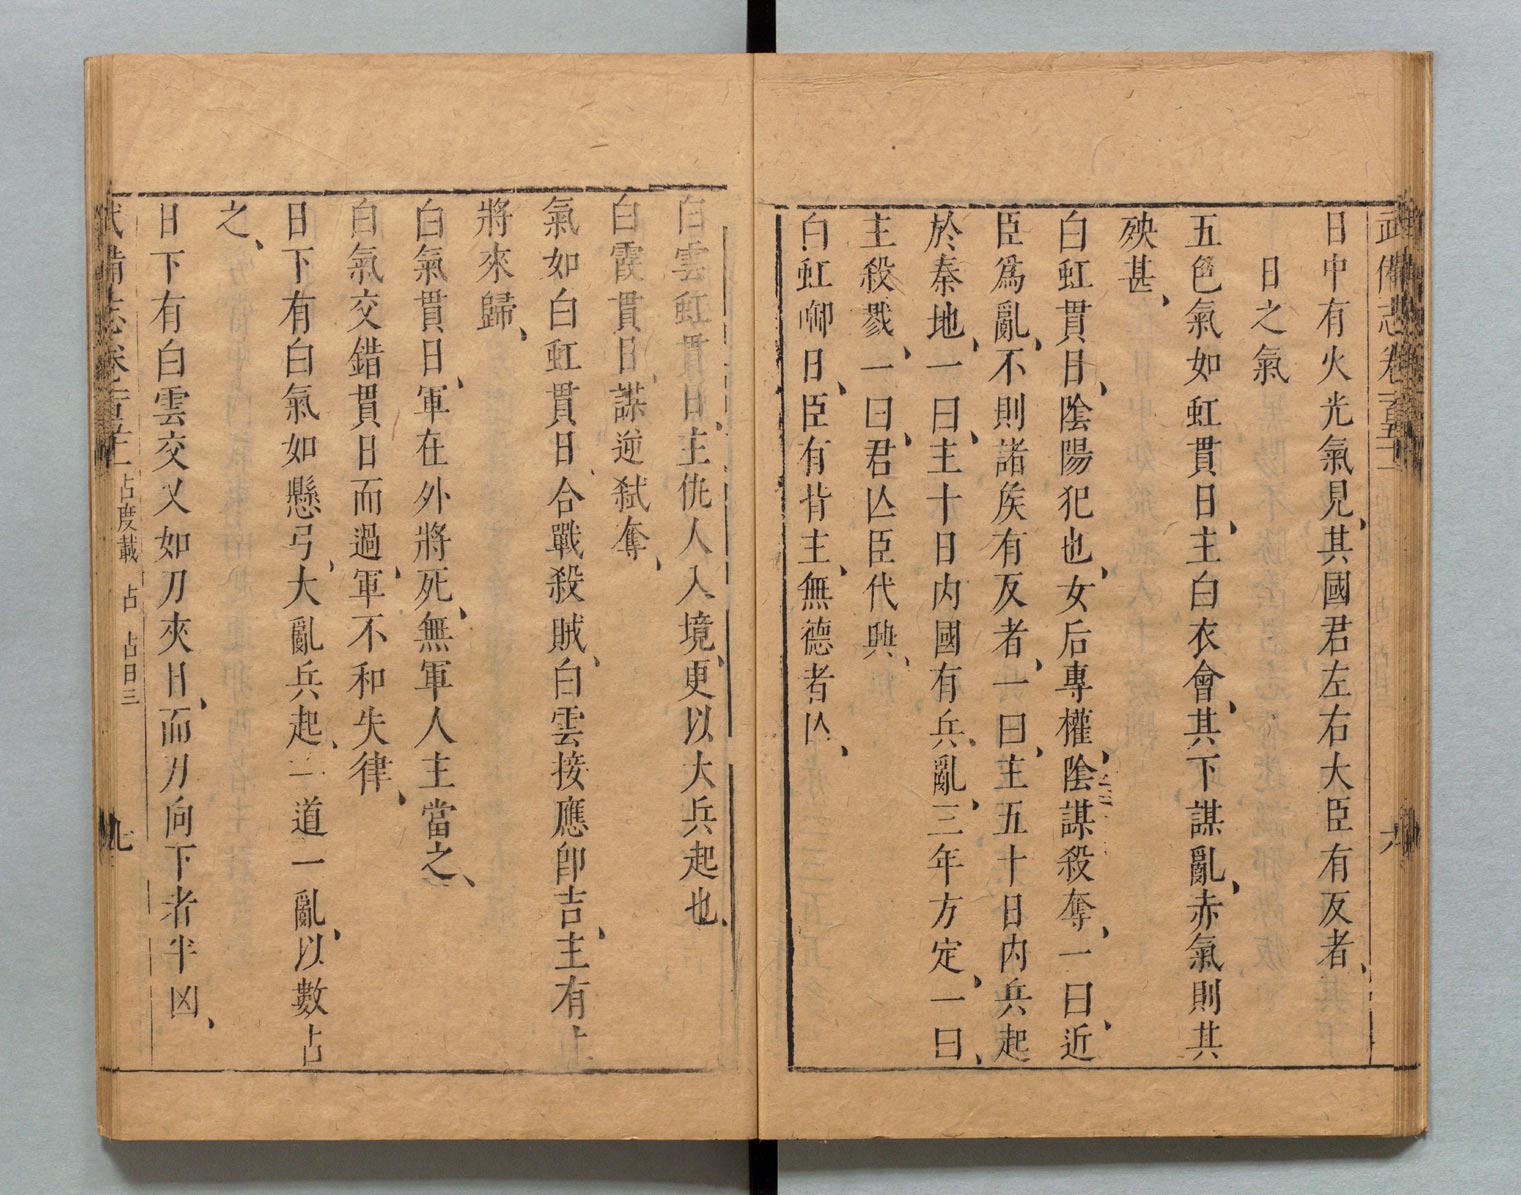 武備志卷一百五十一
六
日中有火光氣見、其國君左右大臣有反者、
日之氣
五色氣如虹貫日、主白衣會、其下謀亂、赤氣則其
殃甚、
白虹貫日、陰陽犯也、女后專權、陰謀殺奪、一曰、近
臣爲亂、不則諸矦有反者、一曰、主五十日內兵起
於秦地、一曰、主十日內國有兵、亂、三年方定、一曰、
主殺戮、一曰、君亾臣代興、
白虹啣日、臣有背主、無德者亾、
白雲虹貫日、主仇人入境、更以大兵起也、
白霞貫日、謀逆弒奪、
氣如白虹貫日、合戰殺賊、白雲接應卽吉、主有
將來歸、
白氣貫日、軍在外將死、無軍人主當之、
白氣交錯貫日而過、軍不和失律、
日下有白氣如懸弓、大亂兵起、一道一亂、以數占
之、
日下有白雲交叉如刀夾日、而刀向下者半凶、
武備志卷一百五十一 占度載 占 占日三
七